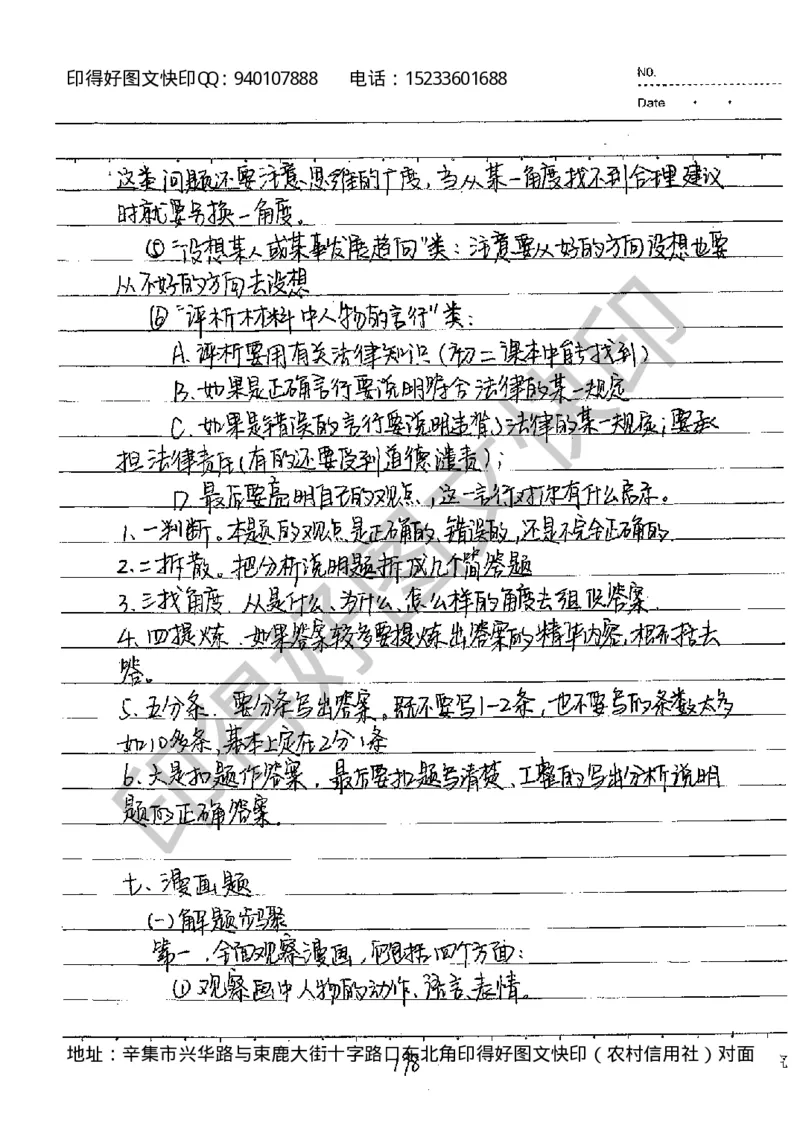 印得好图文快印QQ：940107888 电话：15233601688
NO.
Date
这类问题还要注意思维的广度，当从某一角度找不到合理建议
时就要另换一角度。
⑤“设想某人或某事发展趋向”类：注意要从好的方向设想也要
从不好的方向去设想
⑥“评析材料中人物的言行”类：
A.评析要用有关法律知识（初二课本中能找到）
B.如果是正确言行要说明符合法律的某一规定
C.如果是错误的言行要说明违背了法律的某一规定；要承
担法律责任（有的还要受到道德谴责）；
D.最后要亮明自己的观点，这一言行对你有什么启示。
1.一判断。本题的观点是正确的、错误的，还是不完全正确的
2.二拆散。把分析说明题拆成几个简答题
3.三找角度.从是什么、为什么、怎么样的角度去组织答案.
4.四提炼.如果答案较多要提炼出答案的精华内容，概括去
答。
5.五分条.要分条写出答案。既不要写1-2条，也不要写的条数太多
如10多条，基本上定在2分1条
6.六是扣题作答案，最后要扣题写清楚、工整的写出分析说明
题的正确答案。
七、漫画题
(一)解题步骤
第一，全面观察漫画，包括四个方面：
①观察画中人物的动作、语言、表情。
地址：辛集市兴华路与束鹿大街十字路口东北角印得好图文快印（农村信用社）对面
198
印得好图文快印